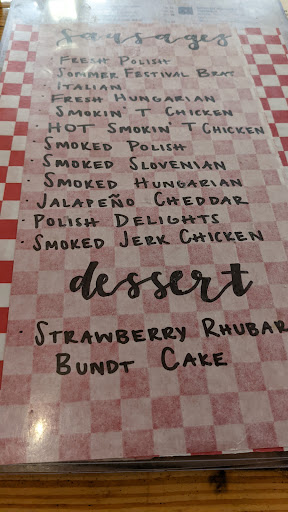 Sausages
· Fresh Polish
· Sommer Festival Brat
· Italian
· Fresh Hungarian
Smokin' T Chicken
· Hot Smokin' T Chicken
· Smoked Polish
· Smoked Slovenian
· Smoked Hungarian
· Jalapeño Cheddar
· Polish Delights
· Smoked Jerk Chicken
dessert
· Strawberry Rhubar
Bundt Cake